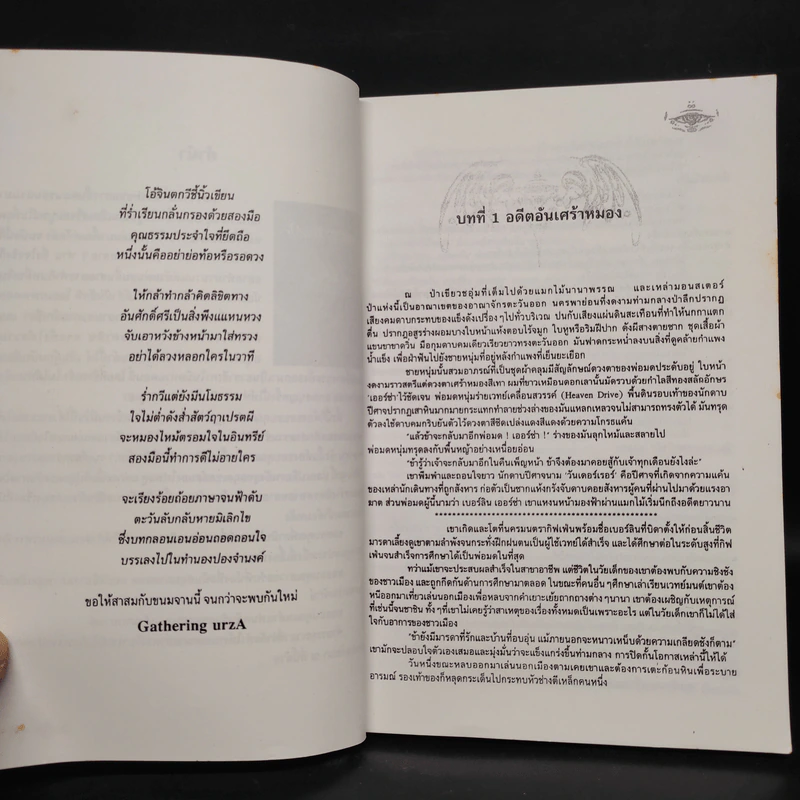 โอ้จินตกวีชี้นิ้วเขียน
ที่ร่ำเรียนกลั่นกรองด้วยสองมือ
คุณธรรมประจำใจที่ยึดถือ
หนึ่งนั้นคืออย่าย่อท้อหรือรอดวง
ให้กล้าทำกล้าคิดลิขิตทาง
อันศักดิ์ศรีเป็นสิ่งพึงแหนหวง
จับเอาหวังข้างหน้ามาใส่ทรวง
อย่าได้ลวงหลอกใครในวาที
ร่ำกวีแต่ยังมีมโนธรรม
ใจไม่ต่ำดั่งส่ำสัตว์ฤาเปรตผี
จะหมองไหม้ตรอมใจในอินทรีย์
สองมือนี้ทำการดีไม่อายใคร
จะเรียงร้อยถ้อยภาษาจนฟ้าดับ
ตะวันลับกลับหายมิเลิกไข
ซึ่งบทกลอนเอนอ่อนถอดถอนใจ
บรรเลงไปในทำนองปองจำนงค์
ขอให้สาสมกับขนมจานนี้ จนกว่าจะพบกันใหม่
Gathering urzA
บทที่ 1 อดีตอันเศร้าหมอง
ณ ป่าเขียวชอุ่มที่เต็มไปด้วยแมกไม้นานาพรรณ และเหล่ามอนสเตอร์
ป่าแห่งนี้เป็นอาณาเขตของอาณาจักรตะวันออก นครพาย่อนที่งดงามท่ามกลางป่าลึกปรากฏ
เสียงคมดาบกระทบของแข็งดังเปรื่องๆไปทั่วบริเวณ ปนกับเสียงแผ่นดินสะเทือนที่ทำให้นกกาแตก
ตื่น ปรากฏอสูรร่างผอมบางใบหน้าแห้งตอบไร้จมูก ใบหูหรือริมฝีปาก ดังผีสางตายซาก ชุดเสื้อผ้า
แขนขาขาดวิ่น มือกุมดาบคมเดียวเรียวยาวทรงตะวันออก มันฟาดกระหน่ำลงบนสิ่งที่ดูคล้ายกำแพง
น้ำแข็ง เพื่อฝ่าฟันไปยังชายหนุ่มที่อยู่หลังกำแพงที่เย็นยะเยือก
ชายหนุ่มนั้นสวมอาภรณ์ที่เป็นชุดผ้าคลุมมีสัญลักษณ์ดวงตาของพ่อมดประดับอยู่ ใบหน้า
งดงามราวสตรีแต่ดวงตาเศร้าหมองสีเทา ผมที่ขาวเหมือนดอกเลานั้นมัดรวบด้วยกำไลสีทองสลักอักษร
'เออร์ซ่า'ไว้ชัดเจน พ่อมดหนุ่มร่ายเวทย์เคลื่อนสวรรค์ (Heaven Drive) พื้นดินรอบเท้าของนักดาบ
ปีศาจปรากฏเสาหินมากมายกระแทกทำลายช่วงล่างของมันแหลกเหลวจนไม่สามารถทรงตัวได้ มันทรุด
ตัวลงใช้ดาบคมกริบยันตัวไว้ดวงตาสีซีดเปล่งแดงสีแดงด้วยความโกรธแค้น
"แล้วข้าจะกลับมาอีกพ่อมด ! เออร์ซ่า !" ร่างของมันลุกไหม้และสลายไป
พ่อมดหนุ่มทรุดลงกับพื้นหญ้าอย่างเหนื่อยอ่อน
"ข้ารู้ว่าเจ้าจะกลับมาอีกในคืนเพ็ญหน้า ข้าจึงต้องมาคอยสู้กับเจ้าทุกเดือนยังไงล่ะ"
เขาพึมพำและถอนใจยาว นักดาบปีศาจนาม 'วันเดอร์เรอร์' คือปีศาจที่เกิดจากความแค้น
ของเหล่านักเดินทางที่ถูกสังหาร ก่อตัวเป็นซากแห้งกรังจับดาบคอยสังหารผู้คนที่ผ่านไปมาด้วยแรงอา
ฆาต ส่วนพ่อมดผู้นี้นามว่า เบอร์ลิน เออร์ซ่า เขาแหงนหน้ามองฟ้าผ่านแมกไม้เริ่มนึกถึงอดีตยาวนาน
เขาเกิดและโตที่นครมนตรากิฟเฟ่นพร้อมชื่อเบอร์ลินที่บิดาตั้งให้ก่อนสิ้นชีวิต
มารดาเลี้ยงดูเขาตามลำพังจนกระทั่งฝึกฝนตนเป็นผู้ใช้เวทย์ได้สำเร็จ และได้ศึกษาต่อในระดับสูงที่กิฟ
เฟ่นจนสำเร็จการศึกษาได้เป็นพ่อมดในที่สุด
ทว่าแม้เขาจะประสบผลสำเร็จในสาขาอาชีพ แต่ชีวิตในวัยเด็กของเขาต้องพบกับความชิงชัง
ของชาวเมือง และถูกกีดกันด้านการศึกษามาตลอด ในขณะที่คนอื่นๆศึกษาเล่าเรียนเวทย์มนต์เขาต้อง
หนีออกมาเที่ยวเล่นนอกเมืองเพื่อหลบจากคำเยาะเย้ยถากถางต่างๆนานา เขาต้องเผชิญกับเหตุการณ์
ที่เช่นนี้จนชาชิน ทั้งๆที่เขาไม่เคยรู้ว่าสาเหตุของเรื่องทั้งหมดเป็นเพราะอะไร แต่ในวัยเด็กเขาก็ไม่ได้ใส่
ใจกับอาการของชาวเมือง
"ข้ายังมีมารดาที่รักและบ้านที่อบอุ่น แม้ภายนอกจะหนาวเหน็บด้วยความเกลียดชังก็ตาม"
เขามักจะปลอบใจตัวเองเสมอและมุ่งมั่นว่าจะแข็งแกร่งขึ้นท่ามกลาง การปิดกั้นโอกาสเหล่านี้ให้ได้
วันหนึ่งขณะหลบออกมาเล่นนอกเมืองตามเคยเขาและต้องการเตะก้อนหินเพื่อระบาย
อารมณ์ รองเท้าของก็หลุดกระเด็นไปกระทบหัวช่างตีเหล็กคนหนึ่ง